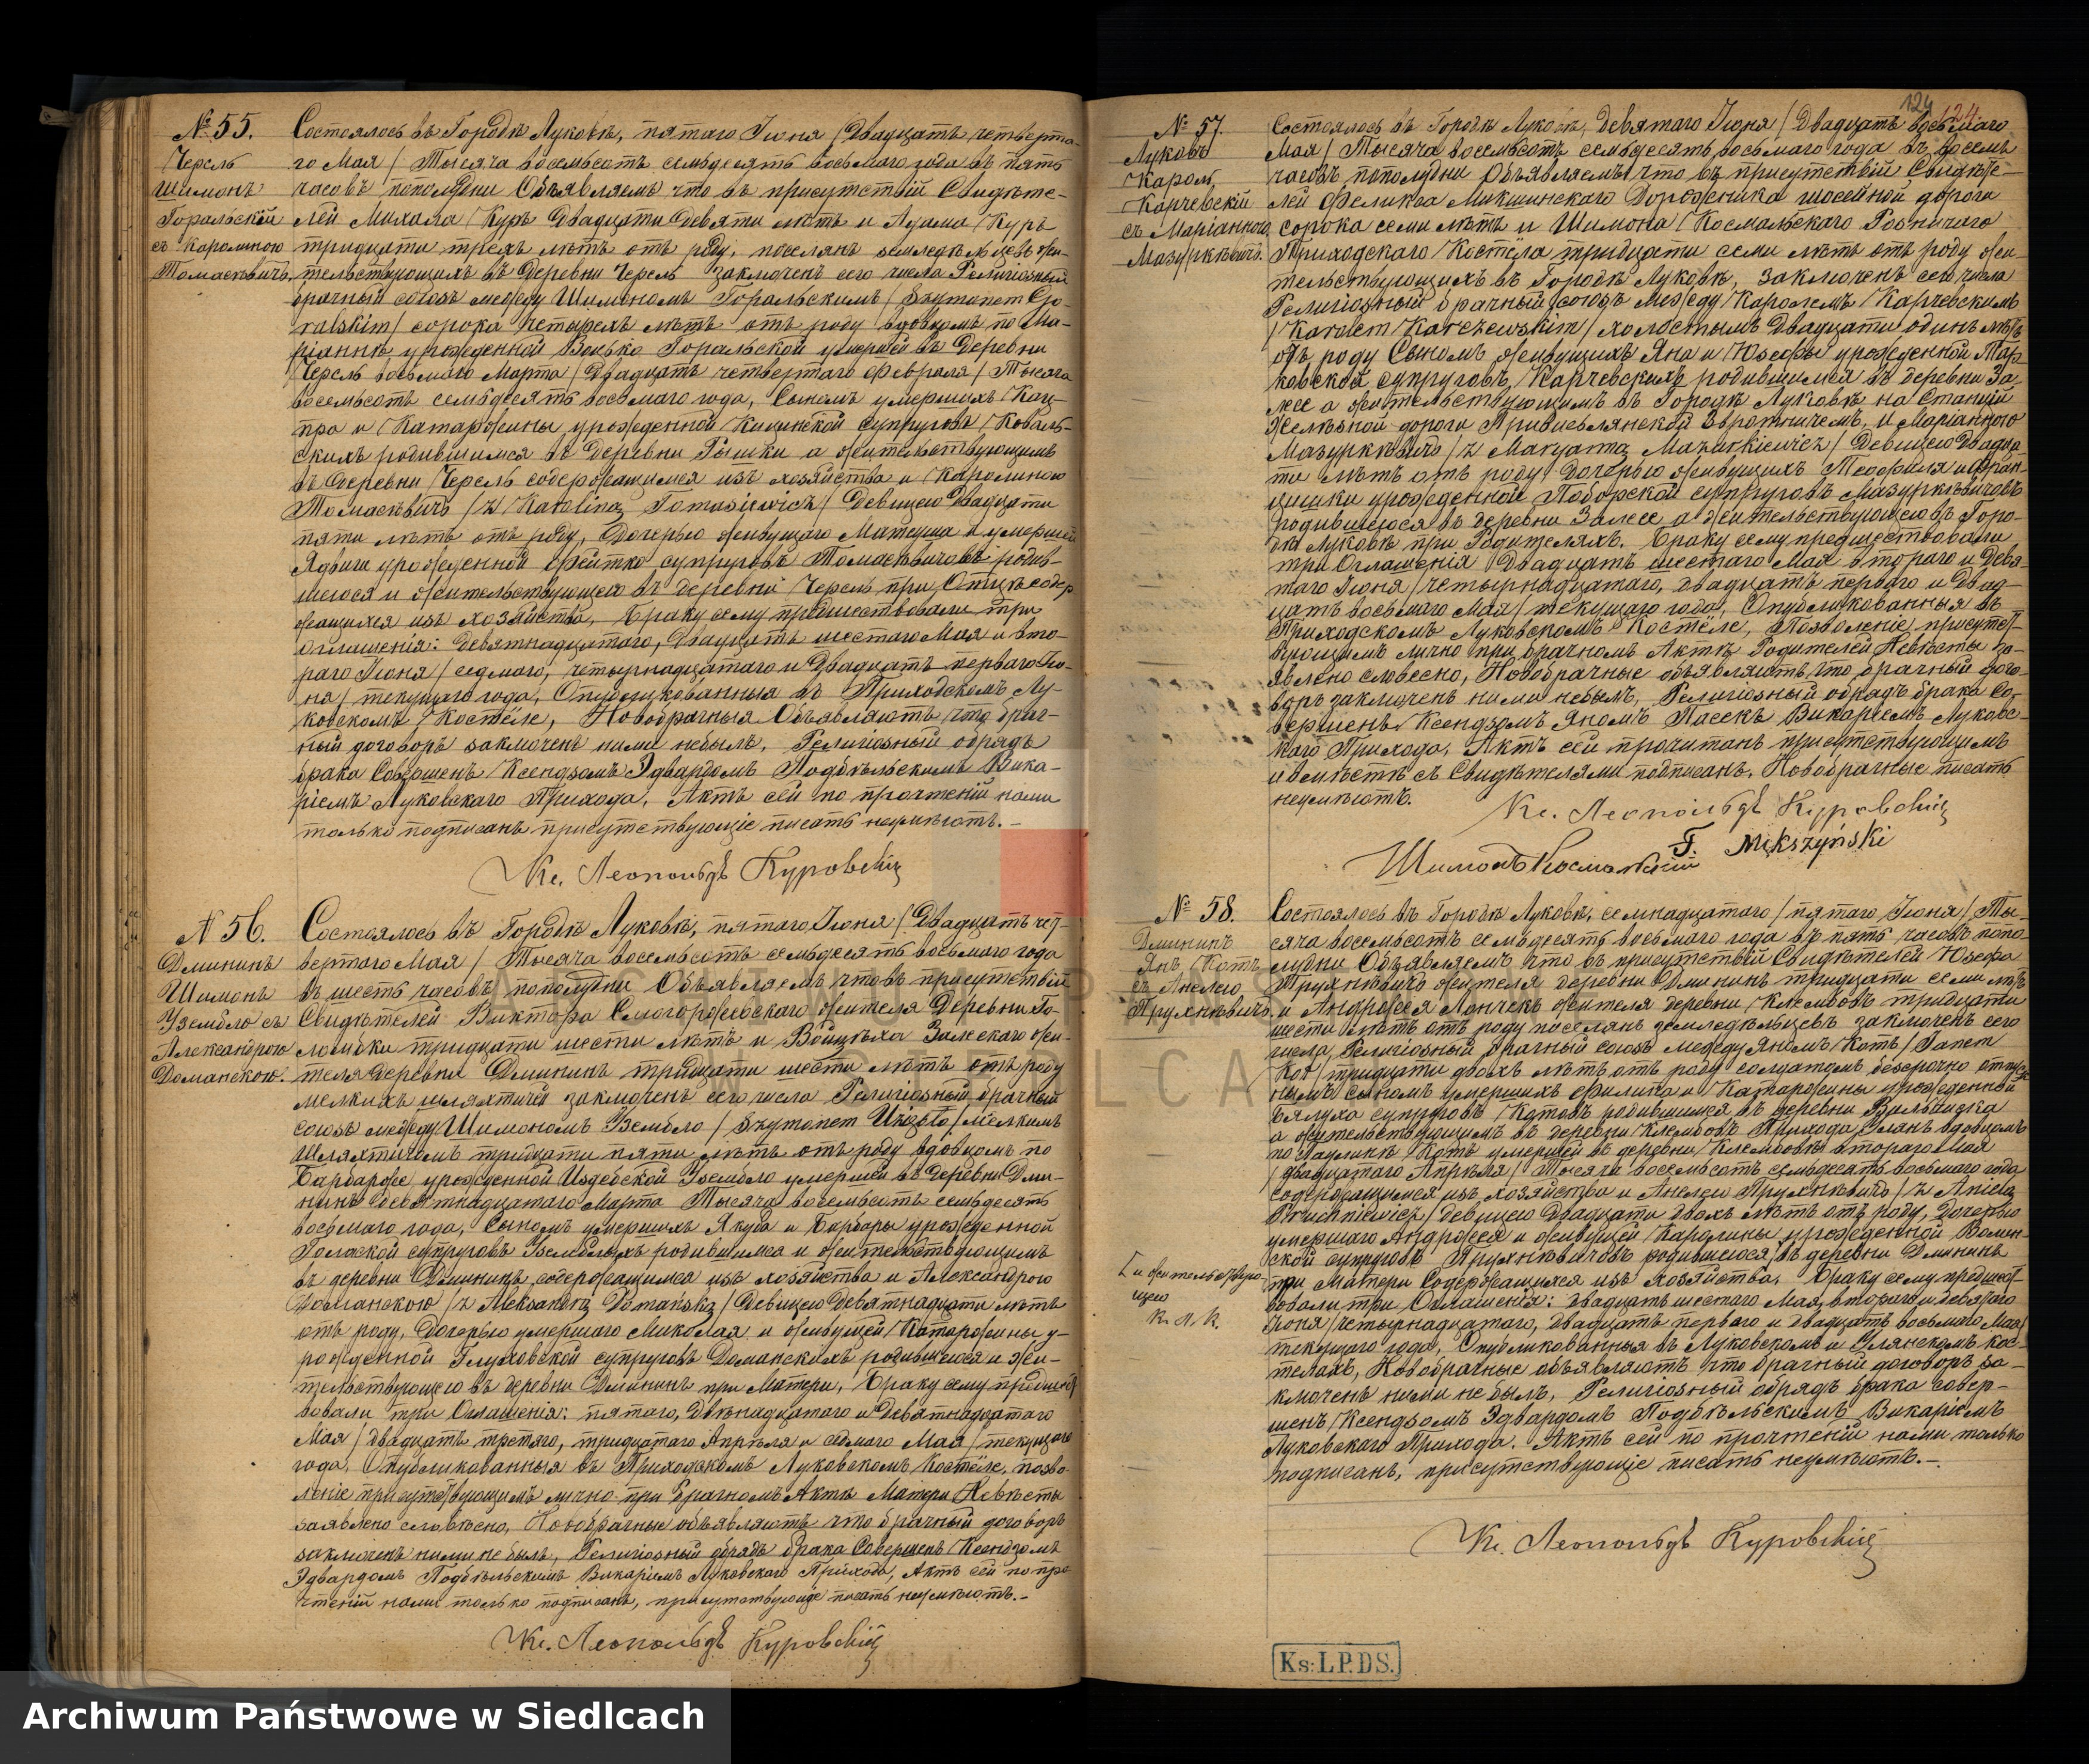 № 55.
Черсль
Шимонъ
Горальскій
съ Каролиною
Томасѣвичъ.
Состоялось въ Городѣ Луковѣ, пятаго Іюня / Двадцать четверта-
го Мая / Тысяча восемьсотъ семьдесятъ восьмаго года въ пять
часовъ пополудни Объявляемъ что въ присутствіи Свидѣте-
лей Михала Куръ Двадцати девяти лѣтъ и Адама Куръ
тридцати трехъ лѣтъ отъ роду, поселянъ земледѣльцевъ жи-
тельствующихъ въ Деревни Черсль заключенъ сего числа Религіозный
брачный союзъ между Шимономъ Горальскимъ / Szymonem Go-
ralskim / сорока четырехъ лѣтъ отъ роду вдовцомъ по Ма-
ріаннѣ урожденной Горальской умершей въ Деревни
Черсль восьмаго Марта / Двадцать четвертаго Февраля / Тысяча
восемьсотъ семьдесятъ восьмаго года, Сыномъ умершихъ
и Катаржины урожденной супруговъ
родившимся въ Деревни и жительствующимъ
въ Деревни Черсль содержащимся изъ хозяйства и Каролиною
Томасѣвичъ / z Karoliną Tomasiewicz / Девицею Двадцати
пяти лѣтъ отъ роду, Дочерью живущаго Матеуша и умершей
Ядвиги урожденной супруговъ Томасѣвичовъ родив-
шеюся и жительствующею въ деревни Черсль при Отцѣ содер
жащихся изъ хозяйства, Браку сему предшествовали три
оглашенія: Девятнадцатаго, Двадцать шестаго Мая и вто-
раго Іюня / седмаго, четырнадцатаго и Двадцать перваго Ію-
ня / текущаго года, Опубликованныя въ Приходскомъ Лу-
ковскомъ Костёле, Новобрачныя Объявляютъ что брач-
ный договоръ заключенъ ними небылъ, Религіозный обрядъ
брака Совершенъ Ксендзомъ Эдвардомъ Подбѣльскимъ Вика-
ріемъ Луковскаго Прихода. Актъ сей по прочтеніи нами
только подписанъ присутствующіе писать неумѣютъ.-
Кс. Леопольдъ Куровскій
№ 56.
Дмининъ
Шимонъ
Узембло съ
Александрою
Доманскою.
Состоялось въ Городѣ Луковѣ, пятаго Іюня / Двадцать чет-
вертаго Мая / Тысяча восемьсотъ семьдесятъ восьмаго года
въ шесть часовъ пополудни Объявляемъ что въ присутствіи
Свидѣтелей Виктора Смогоржевскаго жителя Деревни Го-
лашки тридцати шести лѣтъ и Войцѣха Залескаго жи-
теля Деревни Дмининъ тридцати шести лѣтъ отъ роду
мелкихъ шляхтичей заключенъ сего числа Религіозный брачный
союзъ между Шимономъ Узембло / Szymonem Uziębło / мелкимъ
шляхтичомъ тридцати пяти лѣтъ отъ роду вдовцомъ по
Барбарже урожденной Издебской Узембло умершей въ Деревни Дми-
нинъ Девятнадцатаго Марта Тысяча восемьсотъ семьдесятъ
восьмаго года, Сыномъ умершихъ Якуба и Барбары урожденной
Голаской супруговъ Уземблыхъ родившимся и жительствующимъ
въ деревни Дмининъ, содержащимся изъ хозяйства и Александрою
Доманскою / z Aleksandrą Domańską / Девицею Девятнадцати лѣтъ
отъ роду, Дочерью умершаго Миколая и живущей Катаржины у-
рожденной Глуховской супруговъ Доманскихъ родившеюся и жи-
тельствующею въ деревни Дмининъ при Матери, Браку сему предшест
вовали три Оглашенія: пятаго, Двѣнадцатаго и Девятнадцатаго
Мая / двадцать третяго, тридцатаго Апрѣля и седмаго Мая / текущаго
года, Опубликованныя въ Приходскомъ Луковскомъ Костёле, позво-
леніе присутствующимъ лично при брачномъ Актѣ Матери Невѣсты
заявлено словѣсно, Новобрачные объявляютъ что брачный договоръ
заключенъ ними не былъ, Религіозный обрядъ брака Совершенъ Ксендзомъ
Эдвардомъ Подбѣльскимъ Викаріемъ Луковскаго Прихода, Актъ сей по про
чтеніи нами только подписанъ, присутствующіе писать неумѣютъ.-
Кс. Леопольдъ Куровскій
124
124
№ 57.
Луковъ
Кароль
Карчевскій
съ Маріанною
Мазуркѣвичъ.
Состоялось въ Городѣ Луковѣ, Девятаго Іюня / Двадцать восьмаго
Мая / Тысяча восемьсотъ семьдесятъ восьмаго года въ восемь
часовъ пополудни Объявляемъ что въ присутствіи Свидѣте-
лей Феликса Микшинскаго Дорожника шоссейной дороги
сорока семи лѣтъ и Шимона Космальскаго
Приходскаго Костёла тридцати семи лѣтъ отъ роду жи-
тельствующихъ въ Городѣ Луковѣ, заключенъ сего числа
Религіозный брачный союзъ между Каролемъ Карчевскимъ
/ Karolem Karczewskim / холостымъ Двадцати одинъ лѣтъ
отъ роду Сыномъ живущихъ Яна и Юзефы урожденной
супруговъ Карчевскихъ родившимся въ деревни За-
лесе а жительствующимъ въ Городѣ Луковѣ на Станціи
Желѣзной дороги Привислянской Зворотничемъ, и Маріанною
Мазуркѣвичъ / z Maryanną Mazurkiewicz / Девицею Двадца-
ти лѣтъ отъ роду Дочерью живущихъ Теофиля и Фран-
цишки урожденной супруговъ Мазуркѣвичовъ
родившеюся въ деревни Залесе а жительствующею въ Горо-
дѣ Луковѣ при Родителяхъ. Браку сему предшествовали
три Оглашенія Двадцать шестаго Мая втораго и Девя-
таго Іюня / четырнадцатаго, двадцать перваго и Двад-
цать восьмаго Мая / текущаго года, Опубликованныя въ
Приходскомъ Луковскомъ Костёле, Позволеніе присутст-
вующимъ лично при брачномъ Актѣ Родителей Невѣсты за-
явлено словесно, Новобрачные объявляютъ что брачный дого-
воръ заключенъ ними небылъ, Религіозный обрядъ брака Со-
вершенъ Ксендзомъ Яномъ Пасекъ Викаріемъ Луковс-
каго Прихода, Актъ сей прочитанъ присутствующимъ
и вмѣстѣ съ Свидѣтелями подписанъ, Новобрачные писать
неумѣютъ.
Кс. Леопольдъ Куровскій
F. Mikszyński
Шимонъ Космальскій
№ 58.
Дмининъ
Янъ Котъ
съ Анелею
Прухнѣвичъ
Состоялось въ Городѣ Луковѣ, семнадцатаго / пятаго Іюня / Ты-
сяча восемьсотъ семьдесятъ восьмаго года въ пять часовъ попо-
лудни Объявляемъ что въ присутствіи Свидѣтелей Юзефа
Прухнѣвичъ жителя деревни Дмининъ тридцати семи лѣтъ
и Андржея Лончекъ жителя деревни Клембовъ тридцати
шести лѣтъ отъ роду поселянъ земледѣльцевъ заключенъ сего
числа Религіозный брачный союзъ между Яномъ Котъ / Janem
Kot / тридцати двохъ лѣтъ отъ роду солдатомъ безсрочно отпуск
нымъ сыномъ умершихъ Филипа и Катаржины урожденной
Бялуха супруговъ Котовъ родившимся въ деревни
а жительствующимъ въ деревни Клембовъ Прихода Улянъ вдовцомъ
по Паулинѣ Котъ умершей въ деревни Клембовъ втораго Мая
/ двадцатаго Апрѣля / Тысяча восемьсотъ семьдесятъ восьмаго года
содержащимся изъ хозяйства и Анелею Прухнѣвичъ / z Anielą
Pruchniewicz / девицею двадцати двохъ лѣтъ отъ роду, Дочерью
умершаго Андржея и живущей Каролины урожденной
супруговъ Прухнѣвичовъ родившеюся въ деревни Дмининъ
при Матери Содержащихся изъ хозяйства, Браку сему предшест-
вовали три Оглашенія: двадцать шестаго Мая, втораго и девятаго
Іюня / четырнадцатаго, двадцать перваго и двадцать восьмаго Мая /
текущаго года, Опубликованныя въ Луковскомъ и Улянскомъ Кос-
телахъ, Новобрачные объявляютъ что брачный договоръ за-
ключенъ ними не былъ, Религіозный обрядъ брака совер-
шенъ Ксендзомъ Эдвардомъ Подбѣльскимъ Викаріемъ
Луковскаго Прихода. Актъ сей по прочтеніи нами только
подписанъ, присутствующіе писать неумѣютъ.-
и жительствую-
щею
К. Л. К.
Кс. Леопольдъ Куровскій
Ks: L.P.DS.
Archiwum Państwowe w Siedlcach